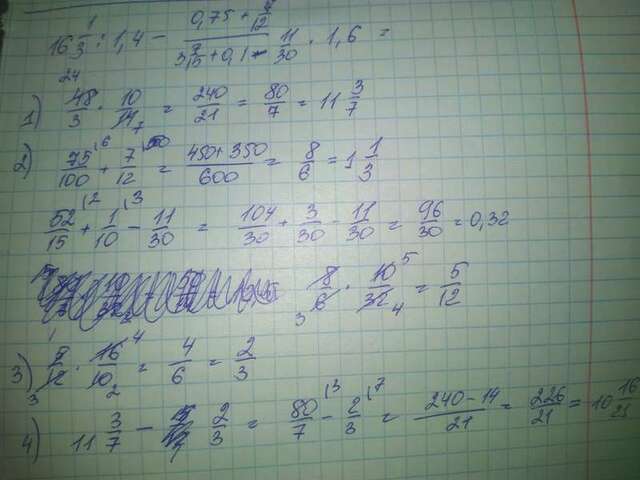 16 1/3 : 1,4 - (0,75 + 7/12)/(3 7/15 + 0,1 - 11/30) · 1,6 =
1) 48/3 · 10/14 = 240/21 = 80/7 = 11 3/7
24 7
2) 75/100 + 7/12 = (450+350)/600 = 8/6 = 1 1/3
52/15 + 1/10 - 11/30 = 104/30 + 3/30 - 11/30 = 96/30 = 0,32
8/6 · 10/32 = 5/12
3) 5/12 · 16/10 = 4/6 = 2/3
4) 11 3/7 - 2/3 = 80/7 - 2/3 = (240-14)/21 = 226/21 = 10 16/21